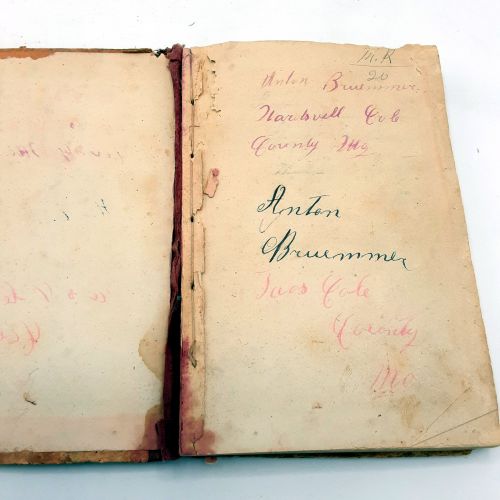 M. K
20
Anton Bruemmer
Wardsvill Cole
County Mo
Anton
Bruemmer
Taos Cole
County
Mo